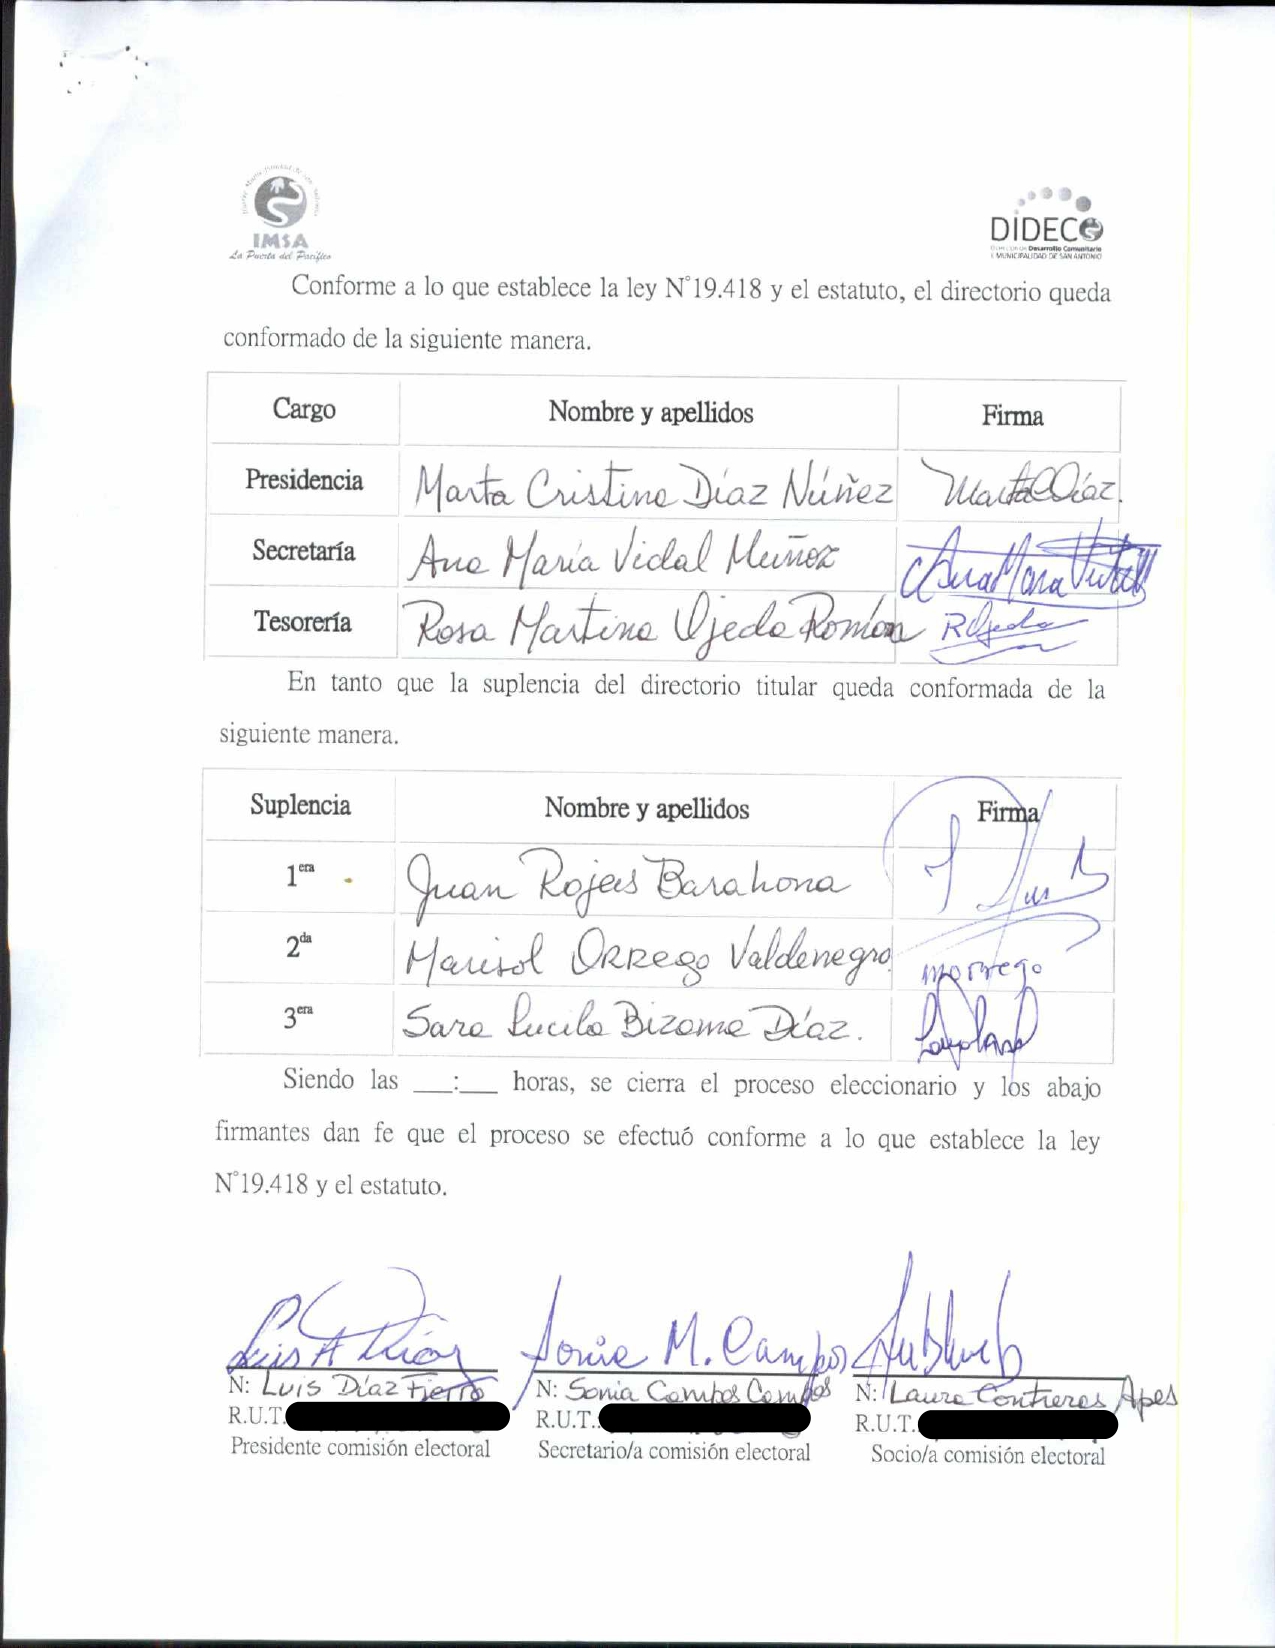 IMSA
La Puerta del Pacífico
DIDECO
Desarrollo Comunitario
I. MUNICIPALIDAD DE SAN ANTONIO
Conforme a lo que establece la ley N°19.418 y el estatuto, el directorio queda
conformado de la siguiente manera.
Cargo Nombre y apellidos Firma
Presidencia Marta Cristina Díaz Núñez Marta Díaz.
Secretaría Ana María Vidal Muñoz Ana María Vidal
Tesorería Rosa Martina Ojeda Román ROjeda
En tanto que la suplencia del directorio titular queda conformada de la
siguiente manera.
Suplencia Nombre y apellidos Firma
1era Juan Rojas Barahona
2da Marisol Orrego Valdenegro morrego
3era Sara Lucila Bizama Díaz.
Siendo las ___:___ horas, se cierra el proceso eleccionario y los abajo
firmantes dan fe que el proceso se efectuó conforme a lo que establece la ley
N°19.418 y el estatuto.
Luis A Díaz Sonia M. Campos
N: Luis Díaz Fierro N: Sonia Campos Campos N: Laura Contreras Apes
R.U.T. R.U.T. R.U.T.
Presidente comisión electoral Secretario/a comisión electoral Socio/a comisión electoral